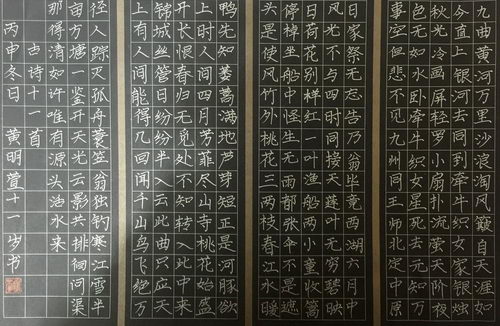 九曲黄河万里沙浪淘风簸自天涯如
今直上银河去同到牵牛织女家银烛
秋光冷画屏轻罗小扇扑流萤天阶夜
色凉如水卧看牵牛织女星死去元知万
事空但悲不见九州同王师北定中原
日家祭无忘告乃翁毕竟西湖六月中
风光不与四时同接天莲叶无穷碧映
日荷花别样红一叶渔船两小童收篙
停棹坐船中怪生无雨都张伞不是遮
头是使风竹外桃花三两枝春江水暖
鸭先知蒌蒿满地芦芽短正是河豚欲
上时人间四月芳菲尽山寺桃花始盛
开长恨春归无觅处不知转入此中来
锦城丝管日纷纷半入云此曲只应天
上有人间能得几回闻千山鸟飞绝万
径人踪灭孤舟蓑笠翁独钓寒江雪半
亩方塘一鉴开天光云影共徘徊问渠
那得清如许唯有源头活水来
古诗十一首
丙申冬日 黄明萱十一岁书